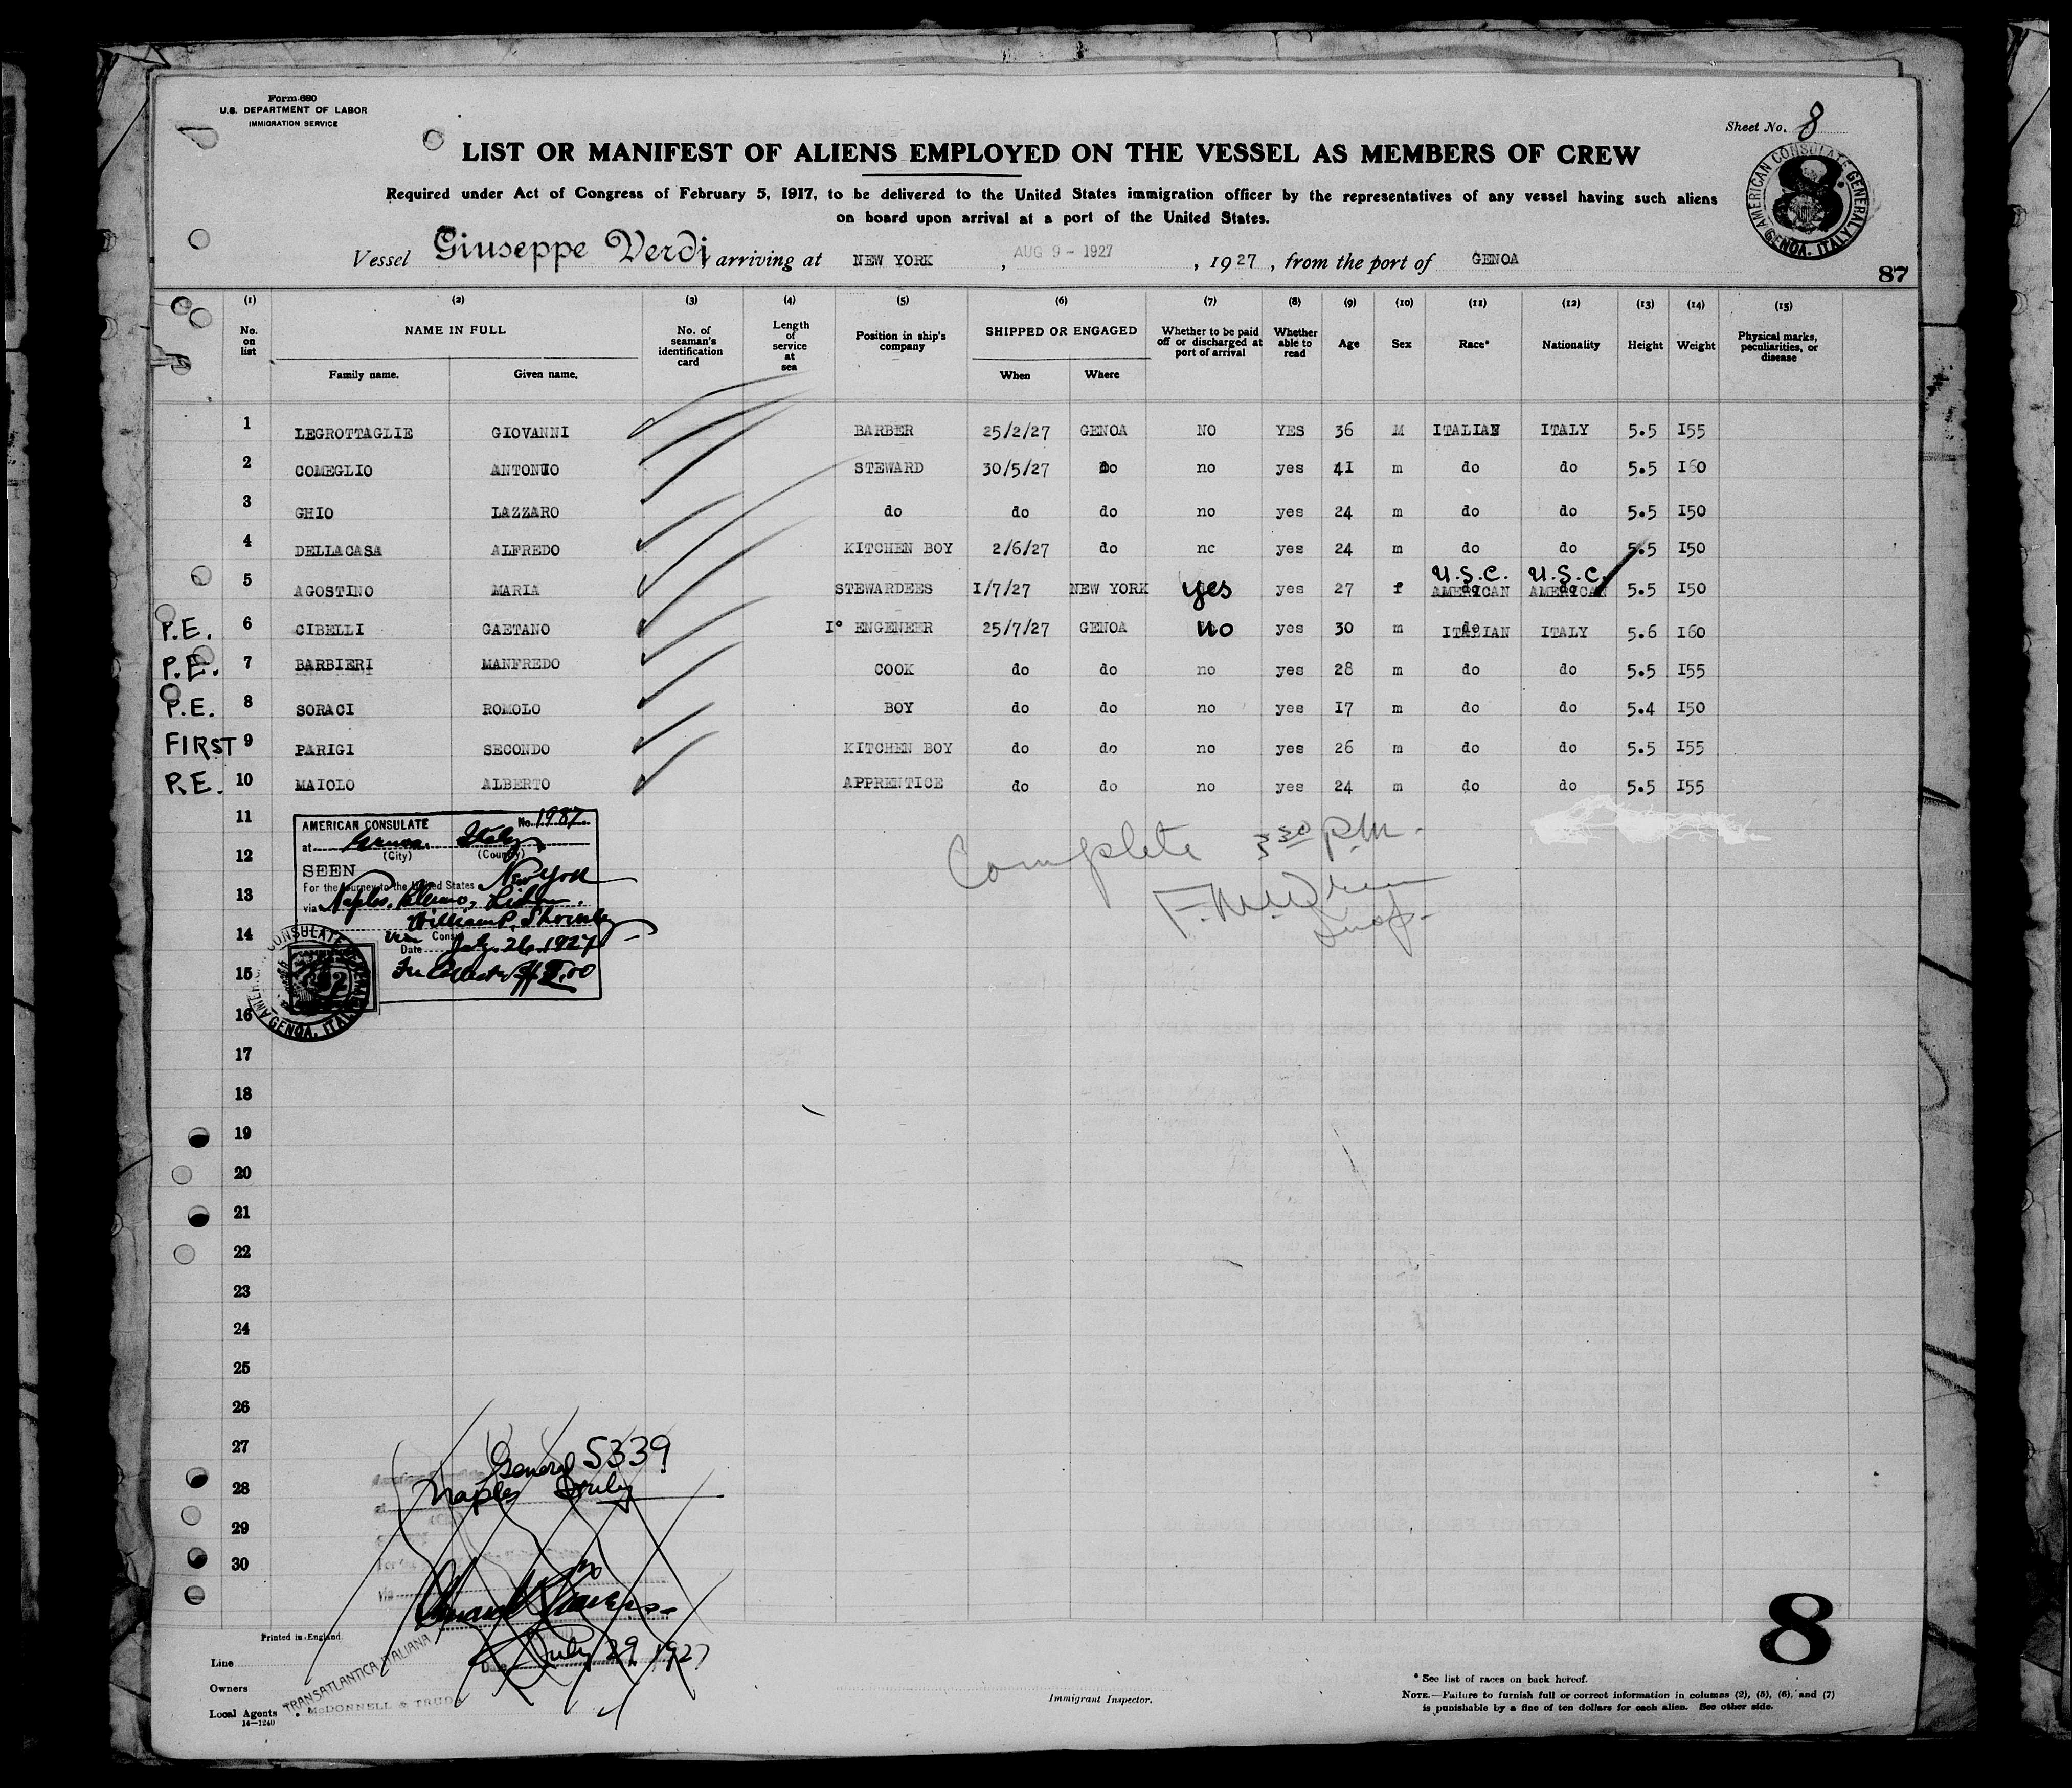 Form 680
U.S. DEPARTMENT OF LABOR
IMMIGRATION SERVICE
Sheet No. 8
LIST OR MANIFEST OF ALIENS EMPLOYED ON THE VESSEL AS MEMBERS OF CREW
Required under Act of Congress of February 5, 1917, to be delivered to the United States immigration officer by the representatives of any vessel having such aliens
on board upon arrival at a port of the United States.
AMERICAN CONSULATE GENERAL GENOA, ITALY
8
Vessel Giuseppe Verdi, arriving at NEW YORK, AUG 9 - 1927, 1927, from the port of GENOA
87
(1) (2) (3) (4) (5) (6) (7) (8) (9) (10) (11) (12) (13) (14) (15)
No. on list NAME IN FULL Family name. Given name. No. of seaman's identification card Length of service at sea Position in ship's company SHIPPED OR ENGAGED When Where Whether to be paid off or discharged at port of arrival Whether able to read Age Sex Race* Nationality Height Weight Physical marks, peculiarities, or disease
1 LEGROTTAGLIE GIOVANNI BARBER 25/2/27 GENOA NO YES 36 M ITALIAN ITALY 5.5 I55
2 COMEGLIO ANTONIO STEWARD 30/5/27 do no yes 41 m do do 5.5 I60
3 GHIO LAZZARO do do do no yes 24 m do do 5.5 I50
4 DELLACASA ALFREDO KITCHEN BOY 2/6/27 do no yes 24 m do do 5.5 I50
5 AGOSTINO MARIA STEWARDEES I/7/27 NEW YORK yes yes 27 f U.S.C. AMERICAN U.S.C. AMERICAN 5.5 I50
P.E. 6 CIBELLI GAETANO I° ENGENEER 25/7/27 GENOA no yes 30 m ITALIAN ITALY 5.6 I60
P.E. 7 BARBIERI MANFREDO COOK do do no yes 28 m do do 5.5 I55
P.E. 8 SORACI ROMOLO BOY do do no yes I7 m do do 5.4 I50
FIRST 9 PARIGI SECONDO KITCHEN BOY do do no yes 26 m do do 5.5 I55
P.E. 10 MAIOLO ALBERTO APPRENTICE do do no yes 24 m do do 5.5 I55
11
12
13
14
15
16
17
18
19
20
21
22
23
24
25
26
27
28
29
30
AMERICAN CONSULATE No. 1987
at Genoa, Italy
(City) (Country)
SEEN
For the journey to the United States New York
via Naples, Palermo,
William P. 
Vice Consul
Date July 26, 1927
GENOA, ITALY
Complete 3 30 P.M.
Insp.
General 5339
Naples Italy
Date July 29 1927
Printed in England
Line
Owners TRANSATLANTICA ITALIANA
Local Agents McDONNELL & TRUDA
14—1240
Immigrant Inspector.
8
* See list of races on back hereof.
NOTE.—Failure to furnish full or correct information in columns (2), (5), (6), and (7)
is punishable by a fine of ten dollars for each alien. See other side.